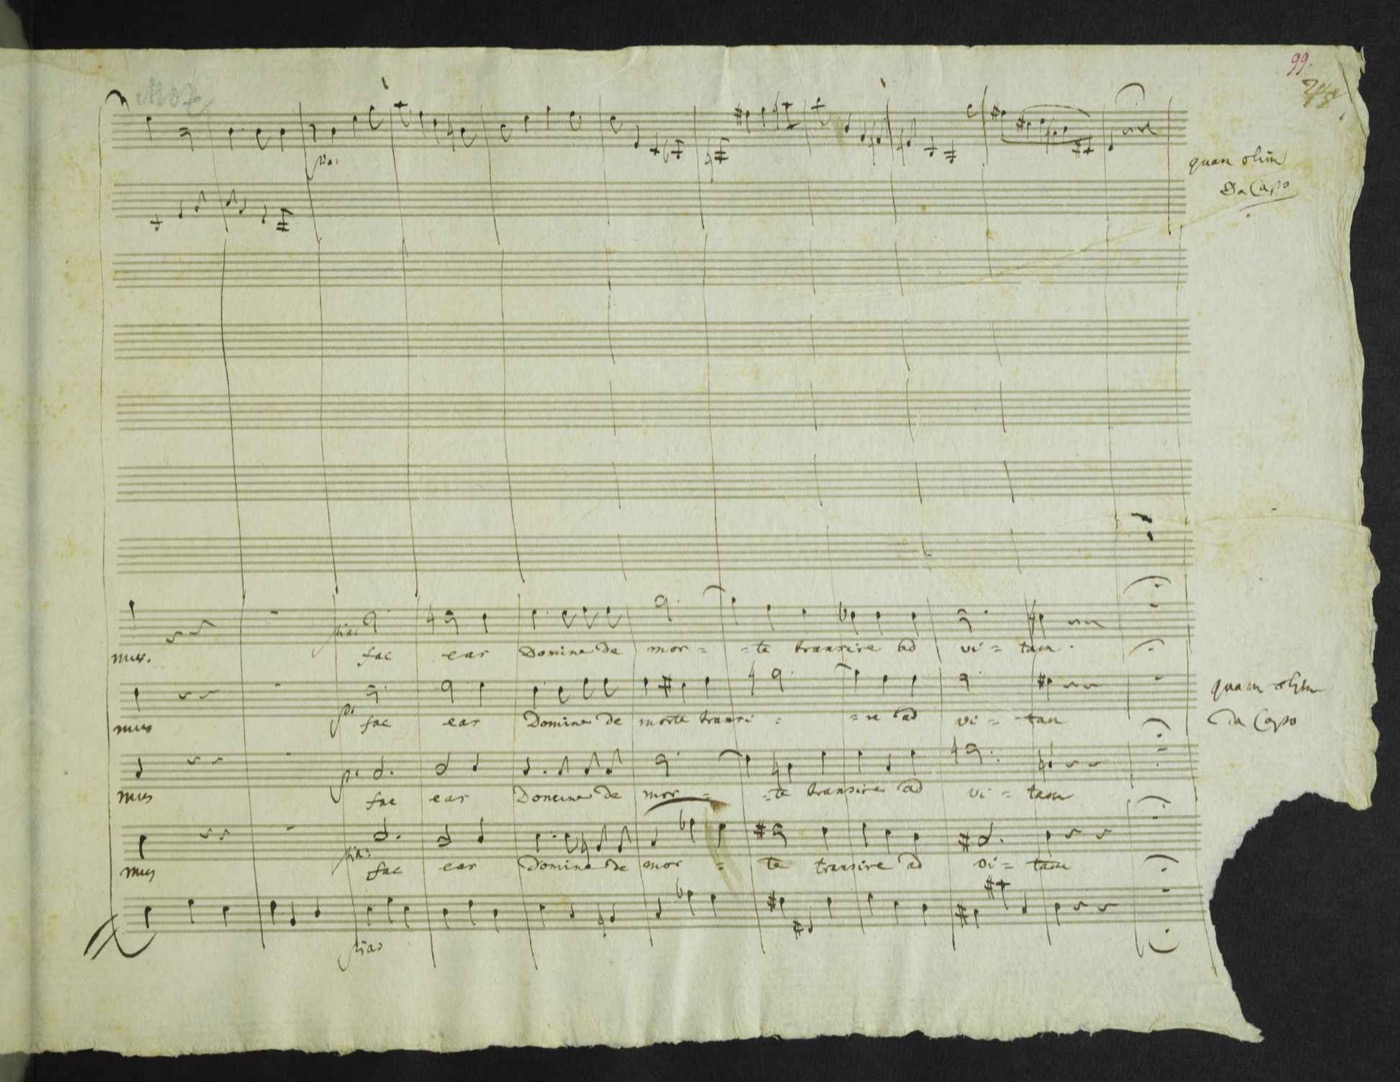 99.
Moz
pia:
quam olim
Da Capo
pia:
mus. fac eas Domine de mor = = te transire ad vi = tam.
pi:
mus fac eas Domine de morte transi = = re ad vi = tam
quam olim
Da Capo
p:
mus fac eas Domine de mor = = te transire ad vi = tam
pia:
mus fac eas Domine de mor = te transire ad vi = tam
pia: